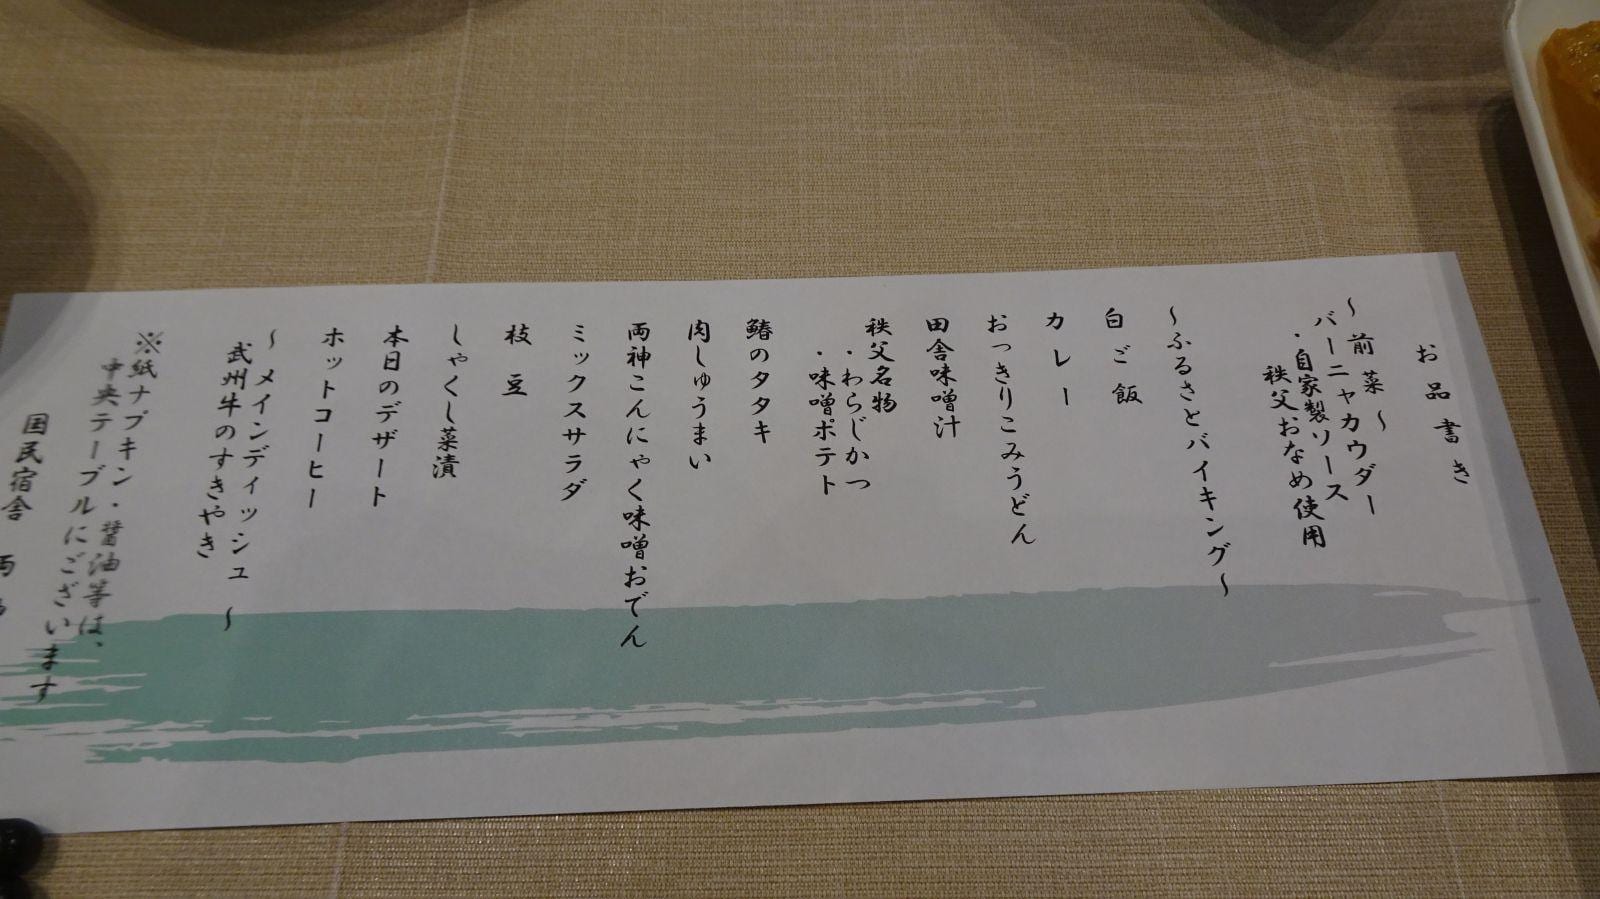 お品書き
～前菜～
バーニャカウダー
・自家製ソース
秩父おなめ使用
～ふるさとバイキング～
白ご飯
カレー
おっきりこみうどん
田舎味噌汁
秩父名物
・わらじかつ
・味噌ポテト
鰆のタタキ
肉しゅうまい
両神こんにゃく味噌おでん
ミックスサラダ
枝豆
しゃくし菜漬
本日のデザート
ホットコーヒー
～メインディッシュ～
武州牛のすきやき
※紙ナプキン・醤油等は、
中央テーブルにございます
国民宿舎 両